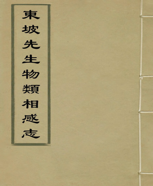 東坡先生物類相感志